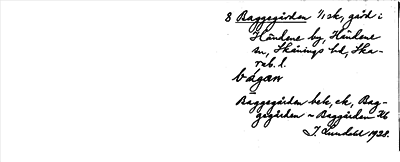 8 Baggegården 1/1 sk, gård i
Händene by, Händene
sn, Skånings hd, Ska-
rab. l.
bàgan
Baggegården bek, ek, Bag-
gegården ~ Baggården Hb
I. Lundahl 1928.